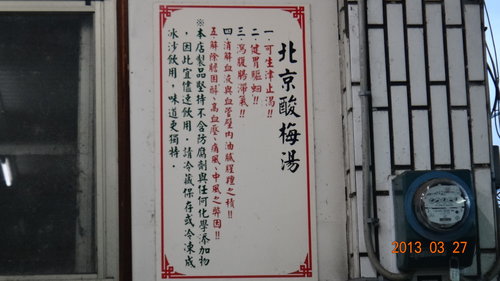 北京酸梅湯
一.可生津止渴!!
二.健胃驅蛔!!
三.瀉腹腸滯氣!!
四.清解血液與血管壁內油膩腥羶之積!!
五.解除醉困醉、高血壓、痛風、中風之弊因!!
※本店製品堅持不含防腐劑與任何化學添加物
，因此宜儘速飲用．請冷藏保存或冷凍成
冰沙飲用，味道更獨特．
2013 03 27